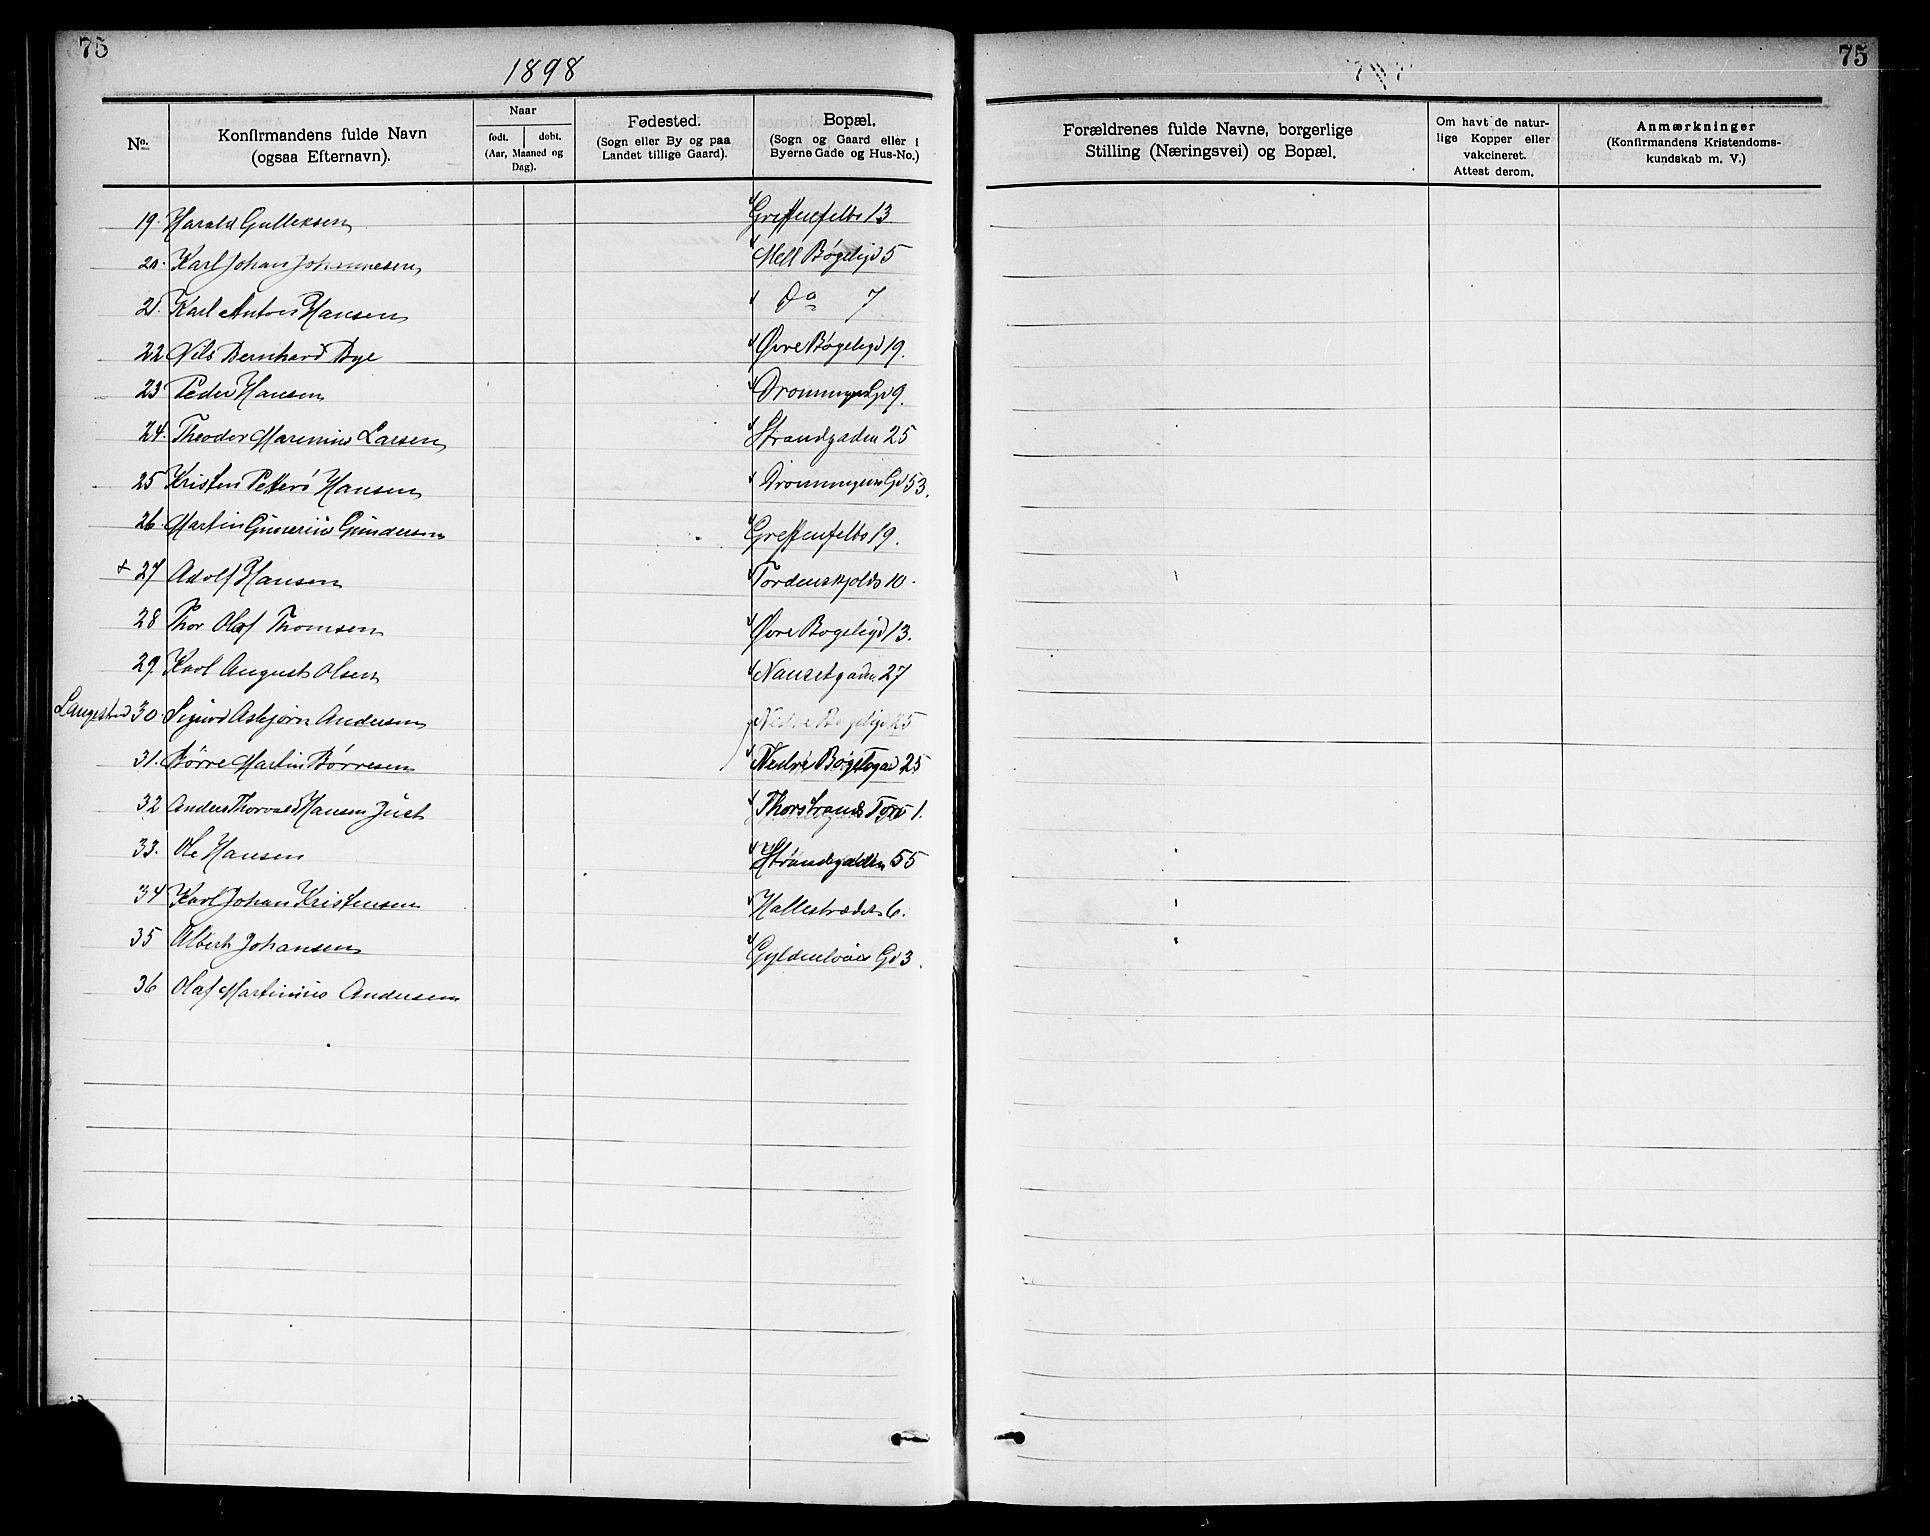 75
1898
No.
Konfirmandens fulde Navn
(ogsaa Efternavn).
Naar
født. døbt.
(Aar, Maaned og
Dag).
Fødested.
(Sogn eller By og paa
Landet tillige Gaard).
Bopæl.
(Sogn og Gaard eller i
Byerne Gade og Hus-No.)
19. Harald Gulleksen Greffenfelds 13
20. Karl Johan Johannesen Mell Bøgeligd 5
21. Karl Anton Hansen Do 7
22 Nils Bernhard Bye Øvre Bøgeligd 19.
23 Peder Hansen Dronningens Gd 9.
24. Theodor Marenius Larsen Strandgaden 25
25 Kristen Hansen Dronningens Gd 53.
26. Martin Gunerius Gundersen Greffenfelds 19.
+ 27 Adolf Hansen Tordenskjolds 10.
28 Thor Olaf Thomsen Øvre Bøgeligd 13.
29. Karl August Olsen Nansetgaden 27
Langestrd 30. Sigurd Asbjørn Andersen Nedre Bøgeligd 25
31. Børre Martin Børresen Nedre Bøgeligd 25
32 Anders Thorvald Hansen Juel Thorstrands Torv 1.
33. Ole Hansen Strandgaden 55
34 Karl Johan Kristensen Hallestrædet 6.
35 Albert Johansen Gyldenløves Gd 3.
36 Olaf Martinius Andersen
75
Forældrenes fulde Navne, borgerlige
Stilling (Næringsvei) og Bopæl.
Om havt de natur-
lige Kopper eller
vakcineret.
Attest derom.
Anmærkninger
(Konfirmandens Kristendoms-
kundskab m. V.)